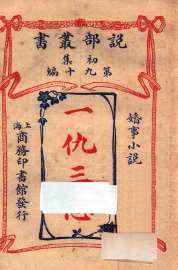 說部叢書
初集
第九十編
婚事小說
一仇三
上海
商務印書館發行